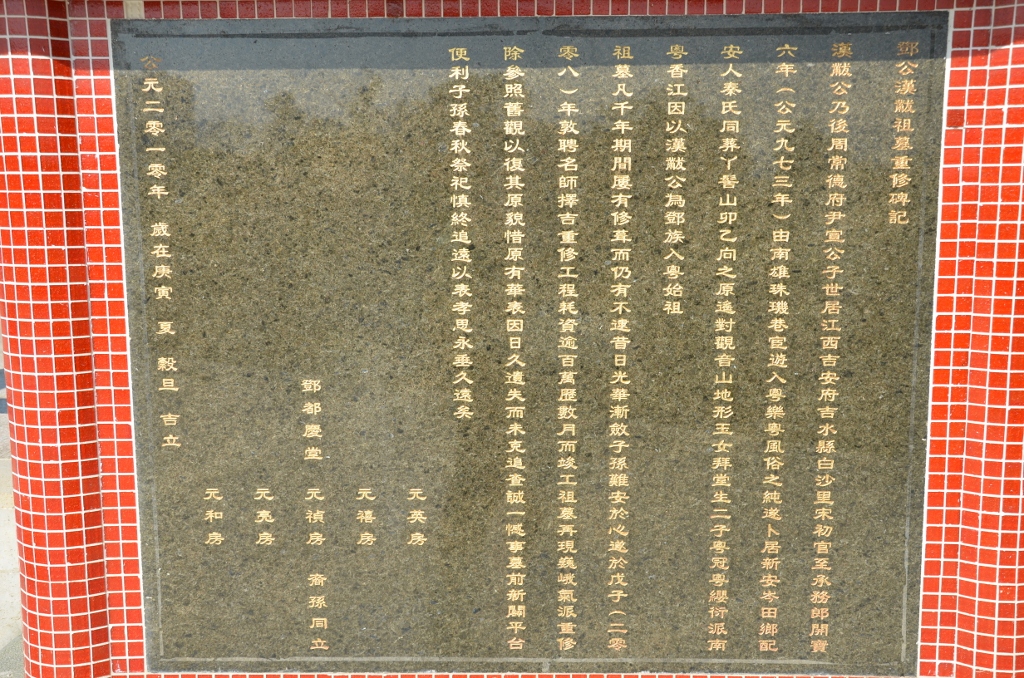 鄧公漢黻祖墓重修碑記
漢黻公乃後周常德府尹宣公子世居江西吉安府吉水縣白沙里宋初官至承務郎開寶
六年（公元九七三年）由南雄珠璣巷宦遊入粵樂粵風俗之純遂卜居新安岑田鄉配
安人秦氏同葬丫髻山卯乙向之原遙對觀音山地形玉女拜堂生二子粵冠粵纓衍派南
粵香江因以漢黻公為鄧族入粵始祖
祖墓凡千年期間屢有修葺而仍有不逮昔日光華漸斂子孫難安於心遂於戊子（二零
零八）年敦聘名師擇吉重修工程耗資逾百萬歷數月而竣工祖墓再現巍峨氣派重修
除參照舊觀以復其原貌惜原有華表因日久遺失而未克追查誠一憾事墓前新闢平台
便利子孫春秋祭祀慎終追遠以表孝思永垂久遠矣
元英房
元禧房
鄧都慶堂 元禎房 裔孫同立
元亮房
元和房
公元二零一零年 歲在庚寅 夏 穀旦 吉立